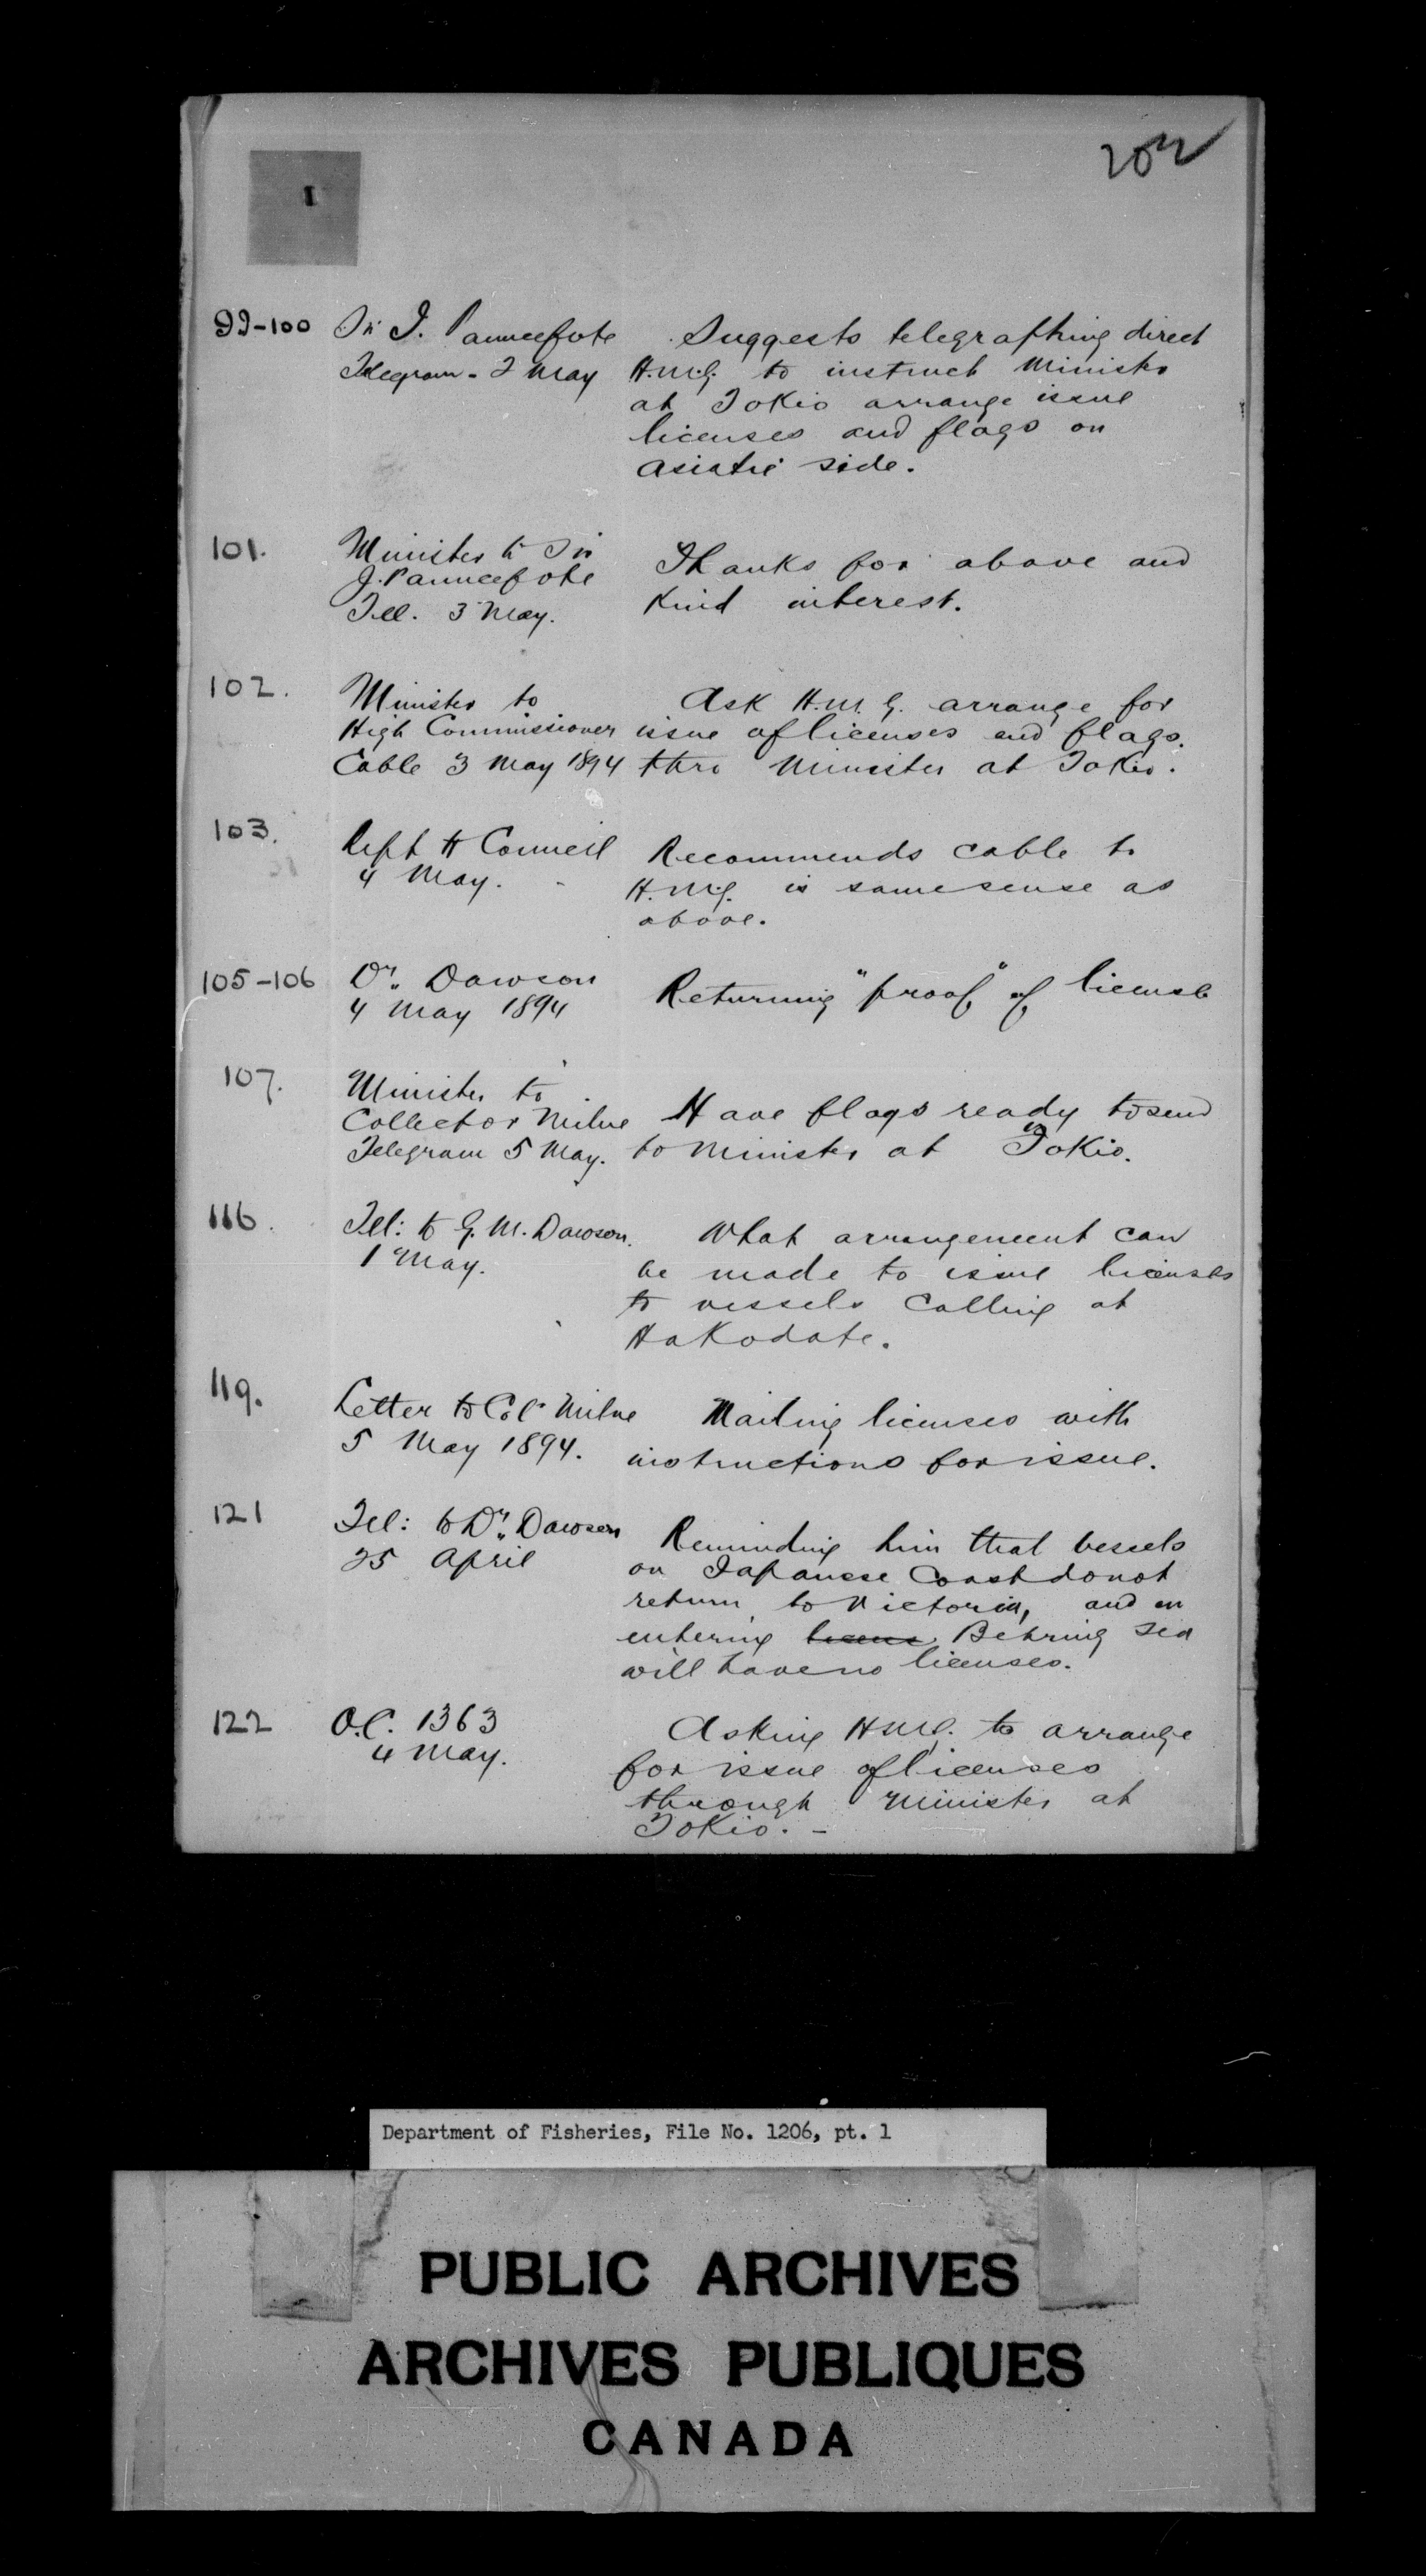 202
I
99-100 Sir J. Pauncefote Suggests telegraphing direct
Telegram - 2 May H.M.G. to instruct Minister
at Tokio arrange issue
licenses and flags on
asiatic side.
101. Minister to Sir
J. Pauncefote Thanks for above and
Tel. 3 May. Kind interest.
102. Minister to Ask H.M.G. arrange for
High Commissioner issue of licenses and flags.
Cable 3 May 1894 thro Minister at Tokio.
103. Rept to Council Recommends cable to
4 May. - H.M.G. in same sense as
above.
105-106 Dr. Dawson
4 May 1894 Returning "proof" of license
107. Minister to
Collector Milne Have flags ready to send
Telegram 5 May. to Minister at Tokio.
116. Tel: to G. M. Dawson. What arrangement can
1 May. be made to issue licenses
to vessels calling at
Hakodate.
119. Letter to Col. Milne Mailing licenses with
5 May 1894. instructions for issue.
121 Tel: to Dr. Dawson Reminding him that vessels
25 April on Japanese Coast do not
return to Victoria, and on
entering Behring Sea
will have no licenses.
122 O.C. 1363 Asking H.M.G. to arrange
4 May. for issue of licenses
through Minister at
Tokio. -
Department of Fisheries, File No. 1206, pt. 1
PUBLIC ARCHIVES
ARCHIVES PUBLIQUES
CANADA